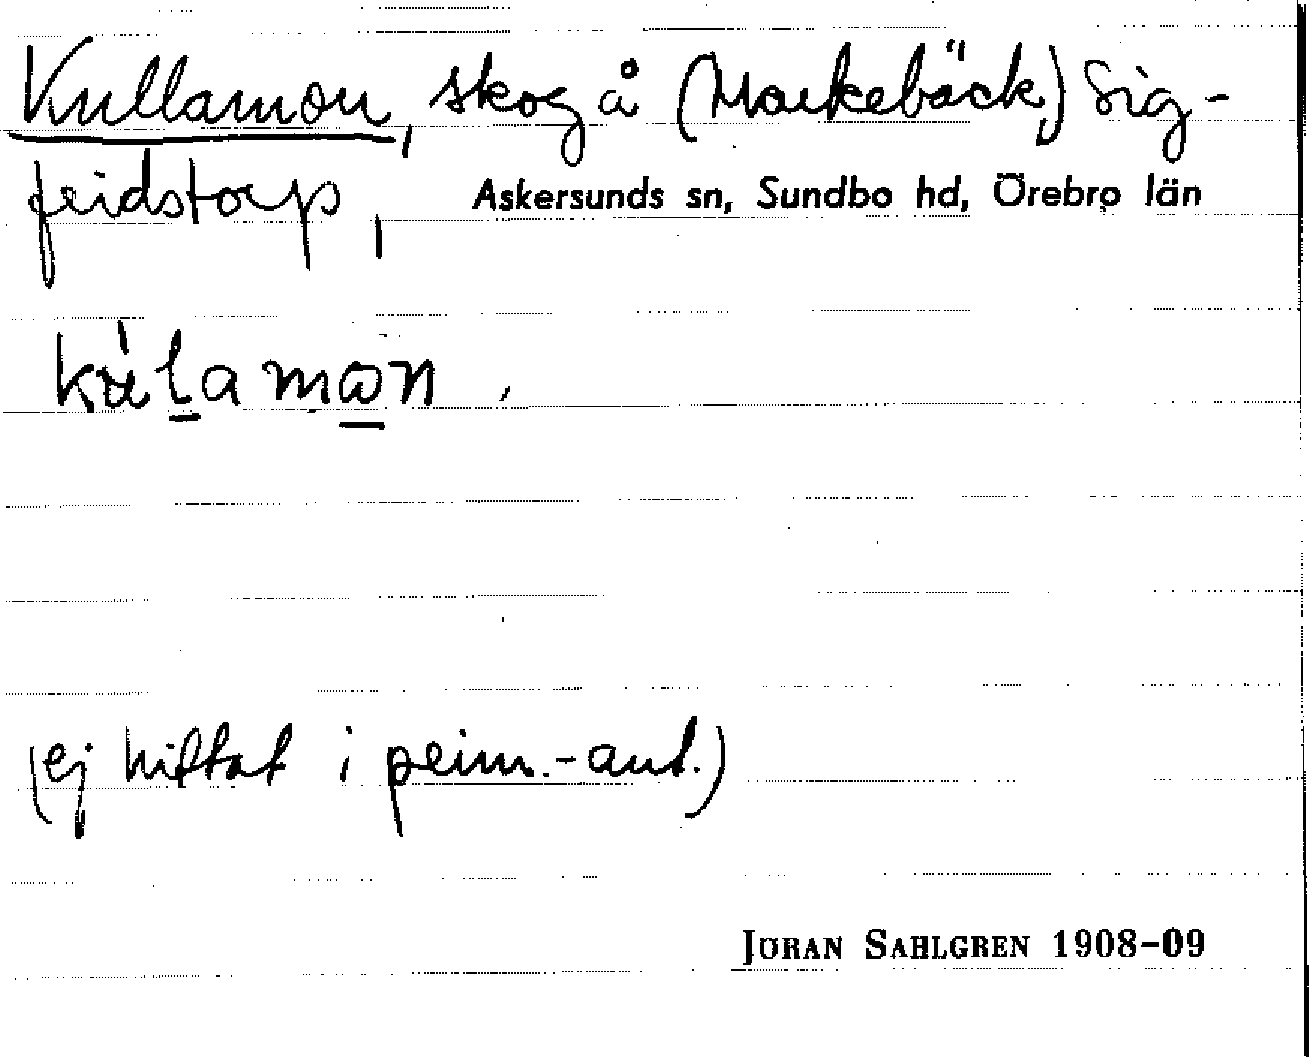 Kullamon, skog å (Markebäck,) Sig-
fridstorp, Askersunds sn, Sundbo hd, Örebro län
kálamon
(ej hittat i prim.-ant.)
JÖRAN SAHLGREN 1908-09